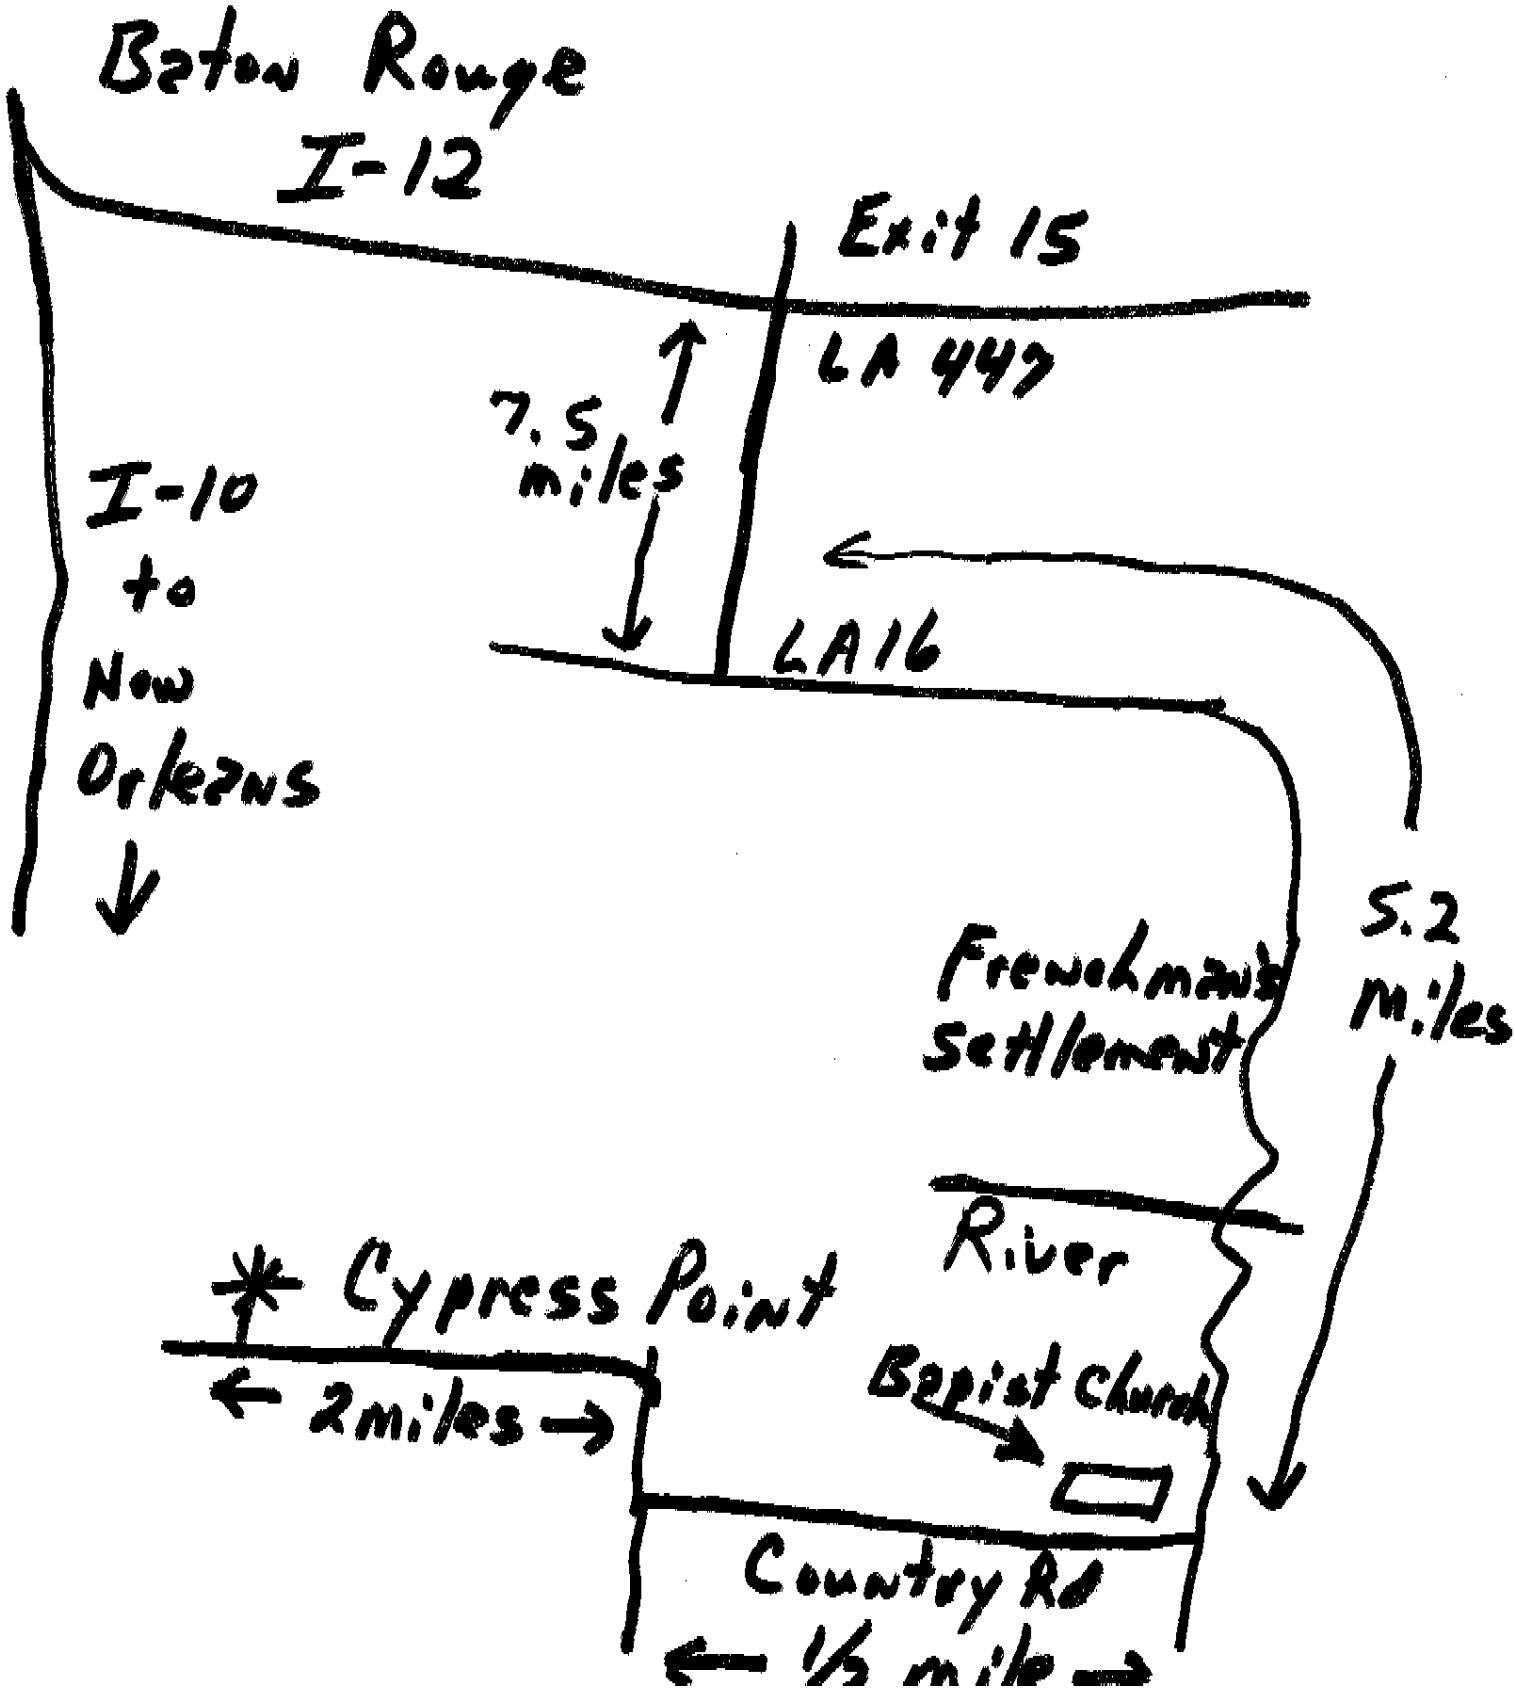 Baton Rouge
I-12
Exit 15
LA 447
7.5
miles
I-10
to
New
Orleans
LA 16
5.2
miles
Frenchman's
Settlement
River
* Cypress Point
← 2 miles →
Bapist Church
Country Rd
← 1/2 mile →